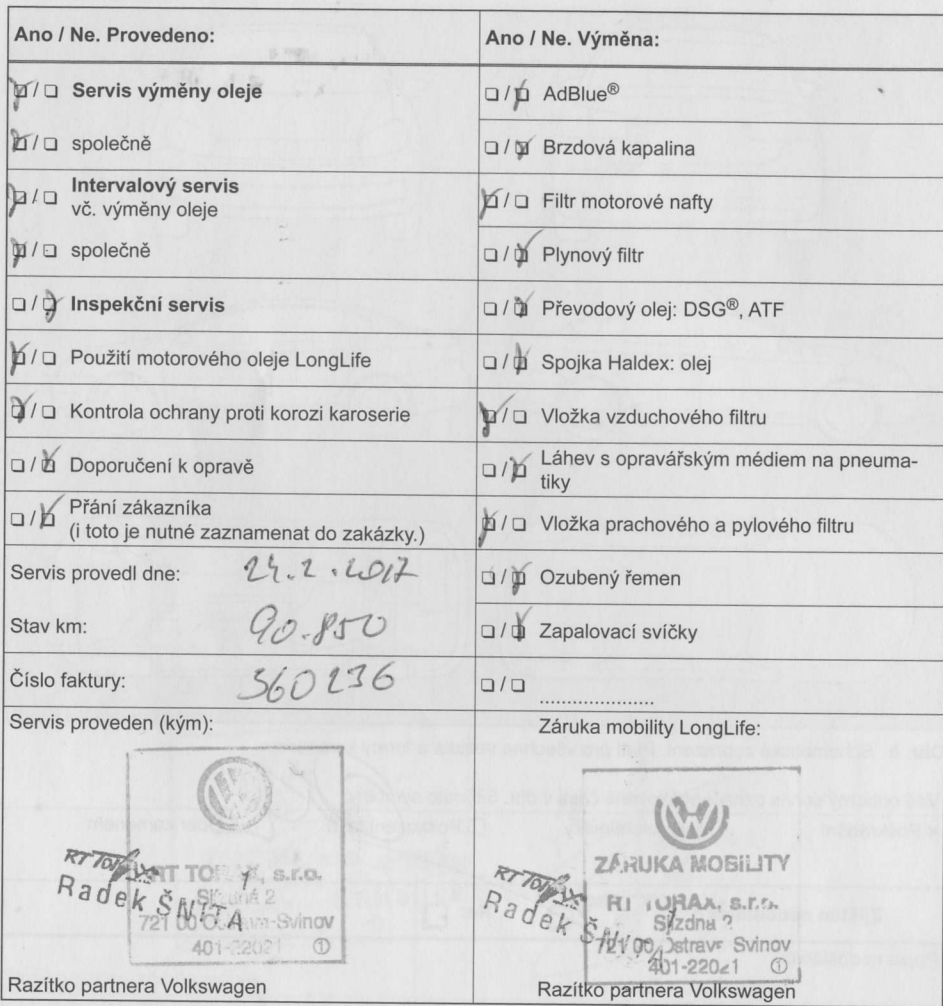 Ano / Ne. Provedeno:
☑ / ☐ Servis výměny oleje
☑ / ☐ společně
☑ / ☐ Intervalový servis
vč. výměny oleje
☑ / ☐ společně
☐ / ☑ Inspekční servis
☑ / ☐ Použití motorového oleje LongLife
☑ / ☐ Kontrola ochrany proti korozi karoserie
☐ / ☑ Doporučení k opravě
☐ / ☑ Přání zákazníka
(i toto je nutné zaznamenat do zakázky.)
Servis provedl dne: 24.2.2017
Stav km: 90.850
Číslo faktury: 360236
Servis proveden (kým):
RT TORAX, s.r.o.
Radek ŠNITA
Slezdná 2
721 00 Ostrava-Svinov
401-22021 ①
Razítko partnera Volkswagen
Ano / Ne. Výměna:
☐ / ☑ AdBlue®
☐ / ☑ Brzdová kapalina
☑ / ☐ Filtr motorové nafty
☐ / ☑ Plynový filtr
☐ / ☑ Převodový olej: DSG®, ATF
☐ / ☑ Spojka Haldex: olej
☑ / ☐ Vložka vzduchového filtru
☐ / ☑ Láhev s opravářským médiem na pneuma-
tiky
☑ / ☐ Vložka prachového a pylového filtru
☐ / ☑ Ozubený řemen
☐ / ☑ Zapalovací svíčky
☐ / ☐ .....................
Záruka mobility LongLife:
ZÁRUKA MOBILITY
RT TORAX, s.r.o.
Radek ŠNITA
721 00 Ostrava Svinov
401-22021 ①
Razítko partnera Volkswagen